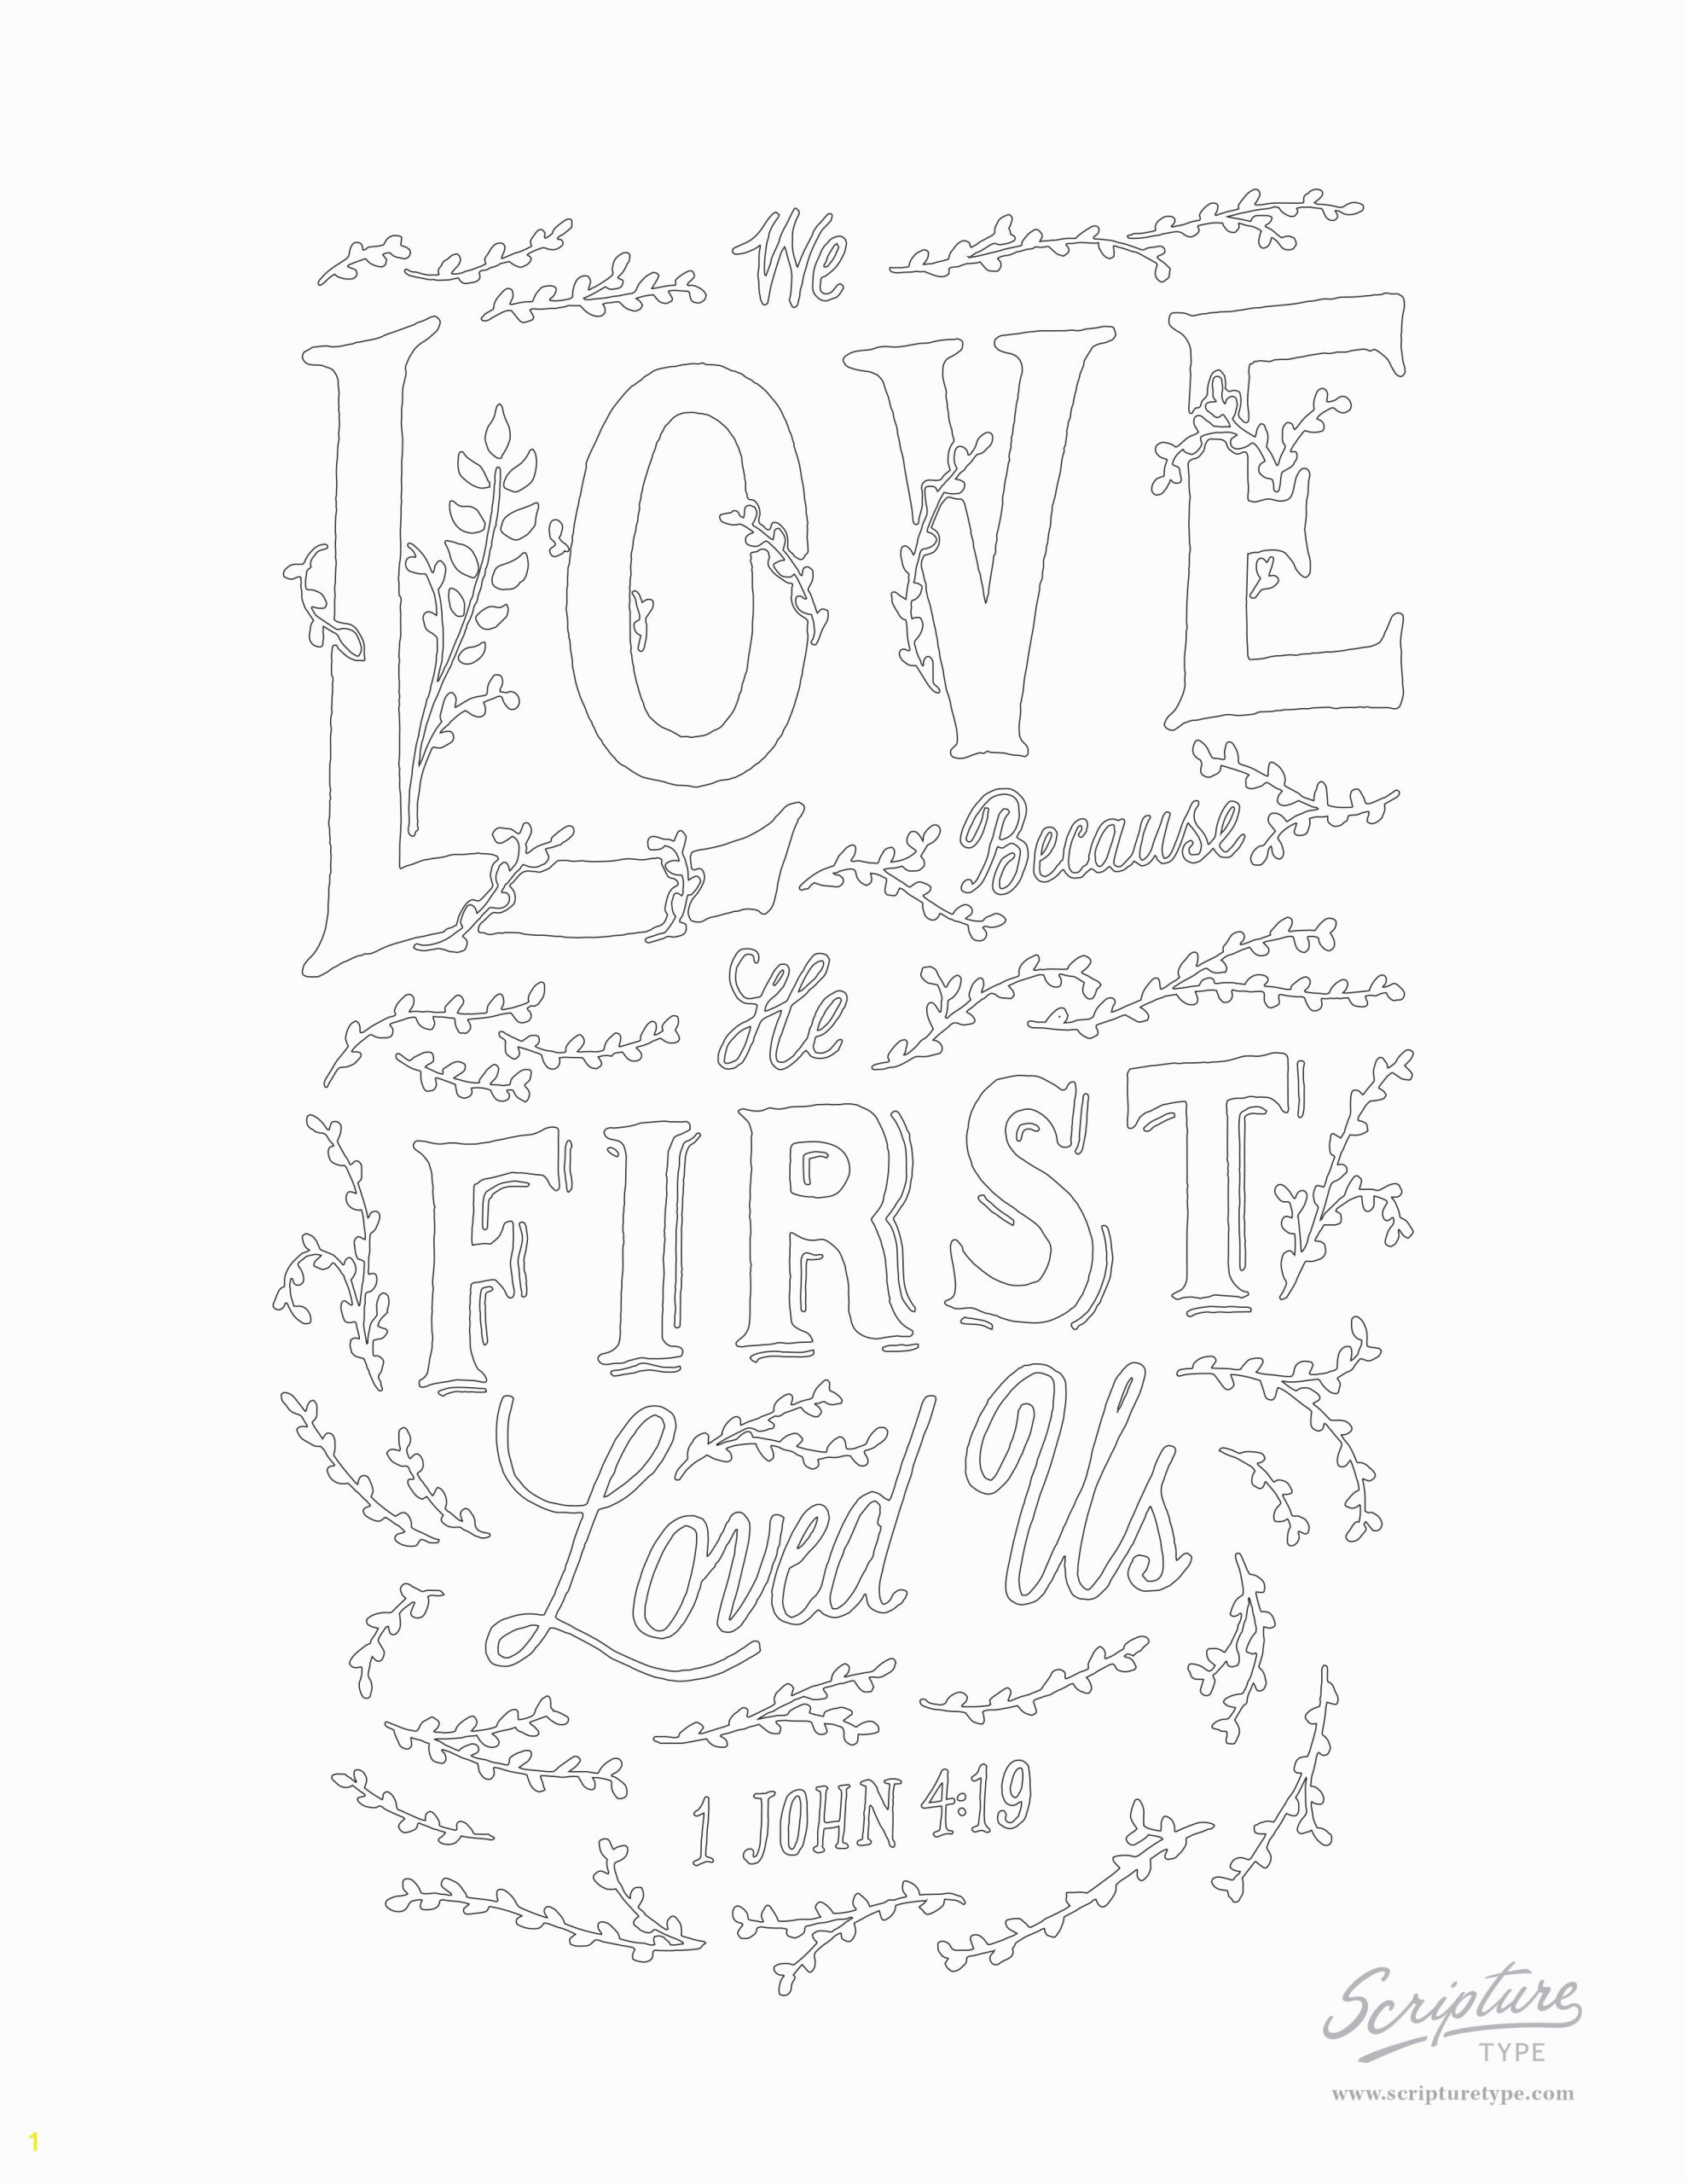 We
LOVE
Because
He
FIRST
Loved Us
1 JOHN 4:19
Scripture
TYPE
www.scripturetype.com
1